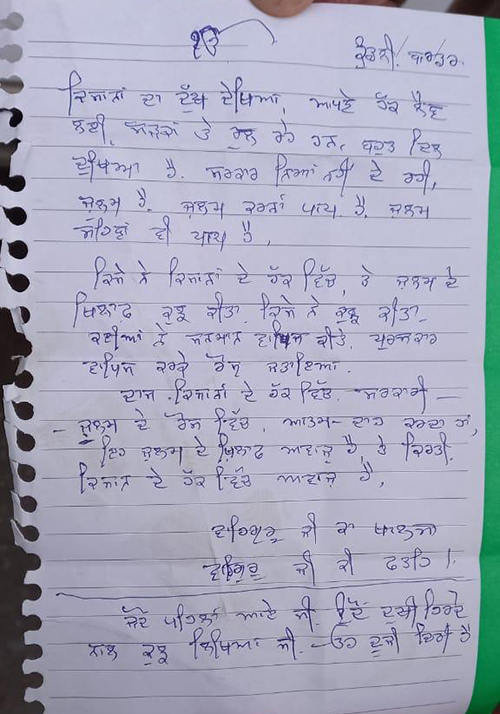 ੴ
ਕੁੰਡਲੀ ਬਾਰਡਰ
ਕਿਸਾਨਾਂ ਦਾ ਦੁੱਖ ਦੇਖਿਆ, ਆਪਣੇ ਹੱਕ ਲੈਣ
ਲਈ, ਸੜਕਾਂ ਤੇ ਰੁਲ ਰਹੇ ਹਨ, ਬਹੁਤ ਦਿਲ
ਦੁਖਿਆ ਹੈ. ਸਰਕਾਰ ਨਿਆਂ ਨਹੀਂ ਦੇ ਰਹੀ,
ਜੁਲਮ ਹੈ. ਜੁਲਮ ਕਰਨਾਂ ਪਾਪ ਹੈ, ਜੁਲਮ
ਸਹਿਣਾਂ ਵੀ ਪਾਪ ਹੈ,
ਕਿਸੇ ਨੇ ਕਿਸਾਨਾਂ ਦੇ ਹੱਕ ਵਿੱਚ, ਤੇ ਜੁਲਮ ਦੇ
ਖਿਲਾਫ ਕੁਝ ਕੀਤਾ ਕਿਸੇ ਨੇ ਕੁਝ ਕੀਤਾ
ਕਈਆਂ ਨੇ ਸਨਮਾਨ ਵਾਪਿਸ ਕੀਤੇ, ਪੁਰਸਕਾਰ
ਵਾਪਿਸ ਕਰਕੇ ਰੋਸ ਜਤਾਇਆ.
ਦਾਸ ਕਿਸਾਨਾਂ ਦੇ ਹੱਕ ਵਿੱਚ, ਸਰਕਾਰੀ -
- ਜੁਲਮ ਦੇ ਰੋਸ ਵਿੱਚ, ਆਤਮ-ਦਾਹ ਕਰਦਾ ਹਾਂ,
ਇਹ ਜੁਲਮ ਦੇ ਖਿਲਾਫ ਆਵਾਜ਼ ਹੈ, ਤੇ ਕਿਰਤੀ
ਕਿਸਾਨ ਦੇ ਹੱਕ ਵਿੱਚ ਆਵਾਜ਼ ਹੈ,
ਵਾਹਿਗੁਰੂ ਜੀ ਕਾ ਖਾਲਸਾ
ਵਾਹਿਗੁਰੂ ਜੀ ਕੀ ਫਤਹਿ।
ਪਹਿਲਾਂ ਆਏ ਸੀ,
ਨਾਲ ਕੁਝ ਲਿਖਿਆ ਸੀ - ਹੈ